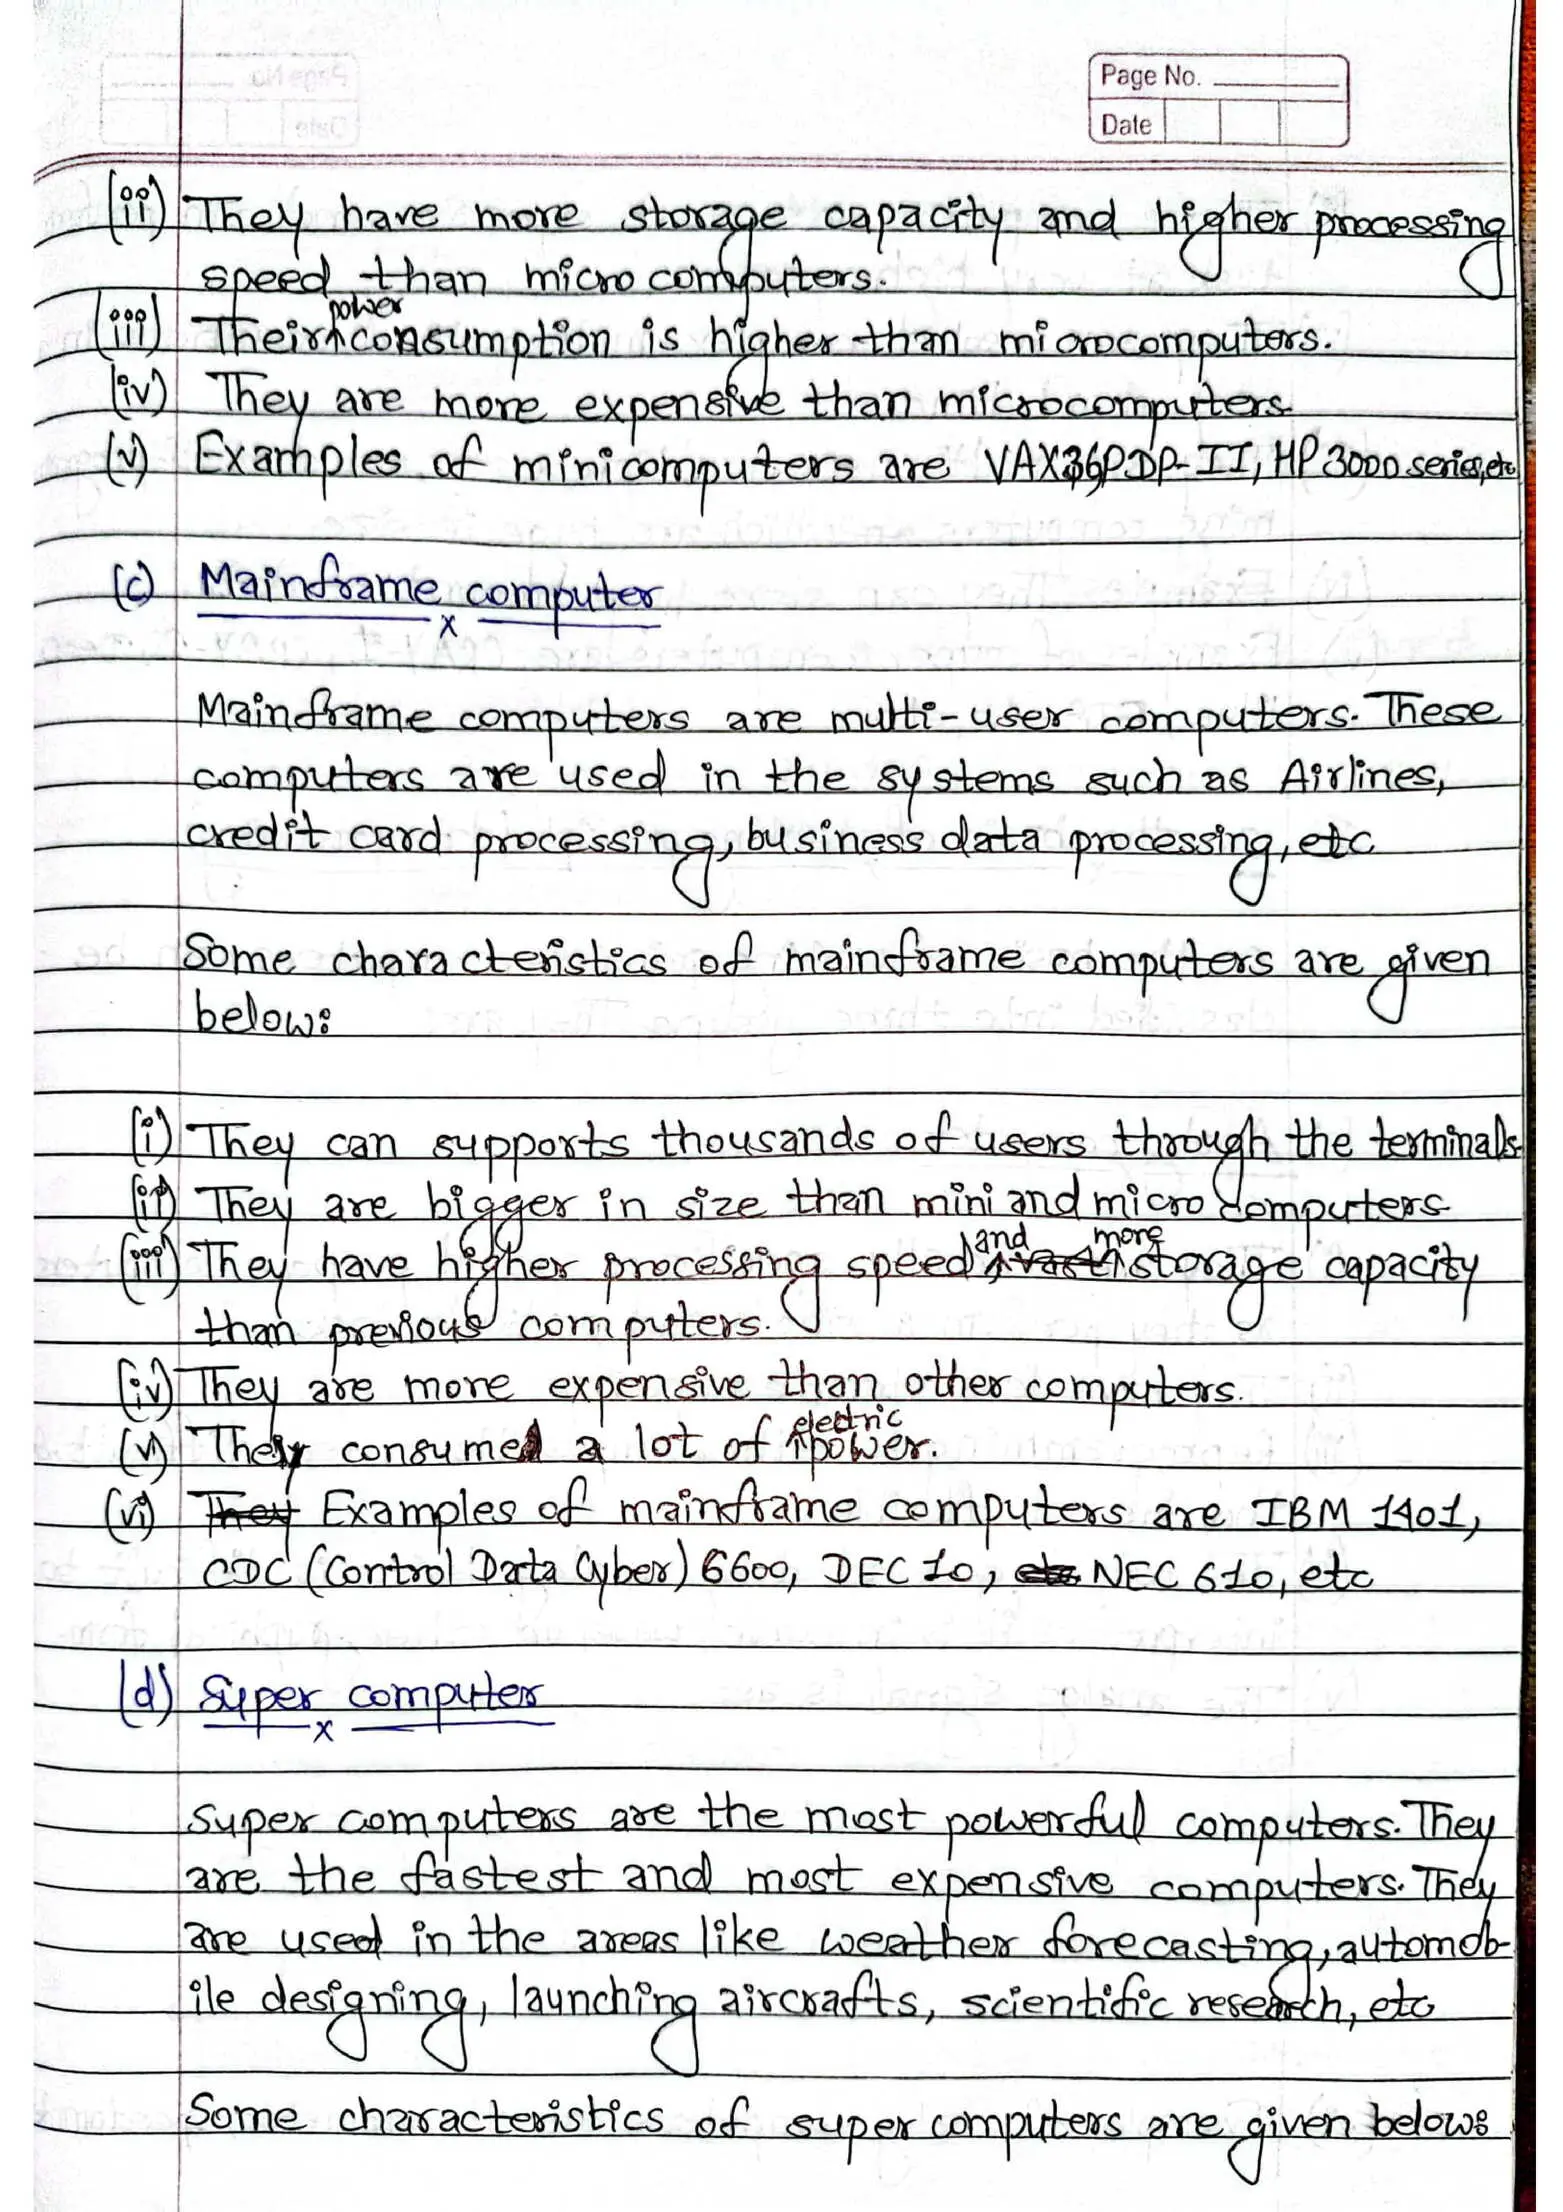 Page No.
Date
(ii) They have more storage capacity and higher processing
speed than micro computers.
(iii) Their power consumption is higher than microcomputers.
(iv) They are more expensive than microcomputers
(v) Examples of minicomputers are VAX36, PDP-II, HP 3000 series, etc
(c) Mainframe computer
x
Mainframe computers are multi-user computers. These
computers are used in the systems such as Airlines,
credit card processing, business data processing, etc
Some characteristics of mainframe computers are given
below:
(i) They can supports thousands of users through the terminals.
(ii) They are bigger in size than mini and micro computers
(iii) They have higher processing speed and more storage capacity
than previous computers.
(iv) They are more expensive than other computers.
(v) They consume a lot of electric power.
(vi) They Examples of mainframe computers are IBM 1401,
CDC (Control Data Cyber) 6600, DEC 10, etc NEC 610, etc
(d) Super computer
x
Super computers are the most powerful computers. They
are the fastest and most expensive computers. They
are used in the areas like weather forecasting, automob-
ile designing, launching aircrafts, scientific research, etc
Some characteristics of super computers are given below: